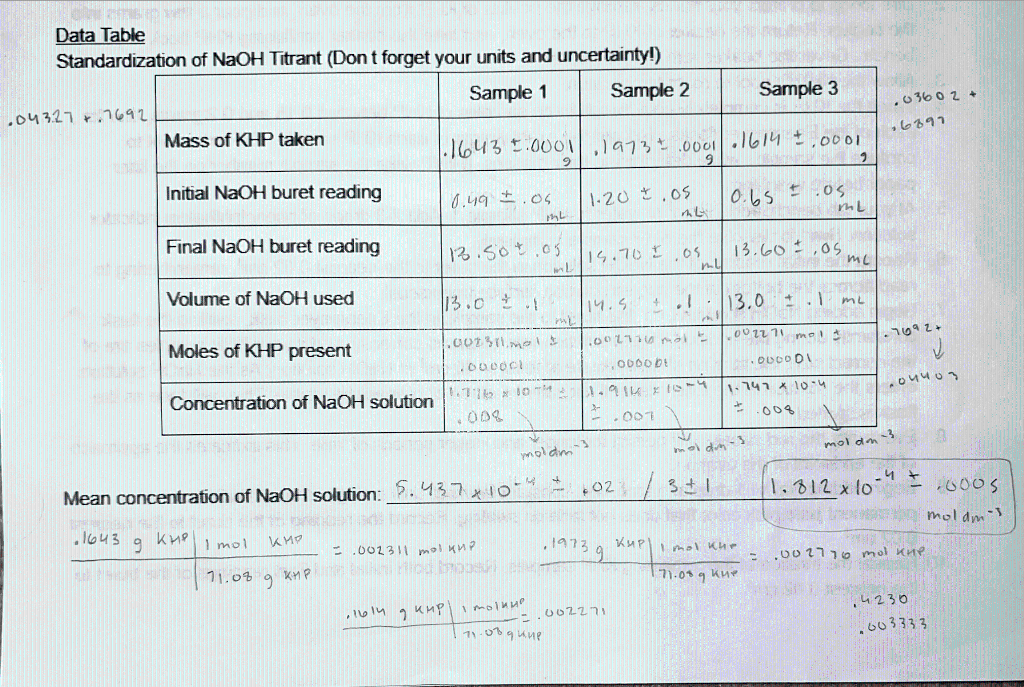 Data Table
Standardization of NaOH Titrant (Don t forget your units and uncertainty!)
Sample 1 Sample 2 Sample 3
.04327 + .7692
.03602 +
.6897
Mass of KHP taken .1643 ± .0001 g .1973 ± .0001 g .1614 ± .0001 g
Initial NaOH buret reading 0.49 ± .05 mL 1.20 ± .05 mL 0.65 ± .05 mL
Final NaOH buret reading 13.50 ± .05 mL 15.70 ± .05 mL 13.60 ± .05 mL
Volume of NaOH used 13.0 ± .1 mL 14.5 ± .1 ml 13.0 ± .1 mL
Moles of KHP present .002311 mol ± .000001 .002776 mol ± .000001 .002271 mol ± .00001
.7692+
.04403
Concentration of NaOH solution 1.776 x 10-4 ± .008 1.914 x 10-4 ± .007 1.747 x 10-4 ± .008
mol dm-3 mol dm-3 mol dm-3
Mean concentration of NaOH solution: 5.437 x 10-4 ± .02 / 3 ± 1 1.812 x 10-4 ± .0005
mol dm-3
.1643 g KHP 1 mol KHP = .002311 mol KHP
71.08 g KHP
.1973 g KHP 1 mol KHP = .002776 mol KHP
71.08 g KHP
.1614 g KHP 1 mol KHP = .002271
71.08 g KHP
.4230
.003333